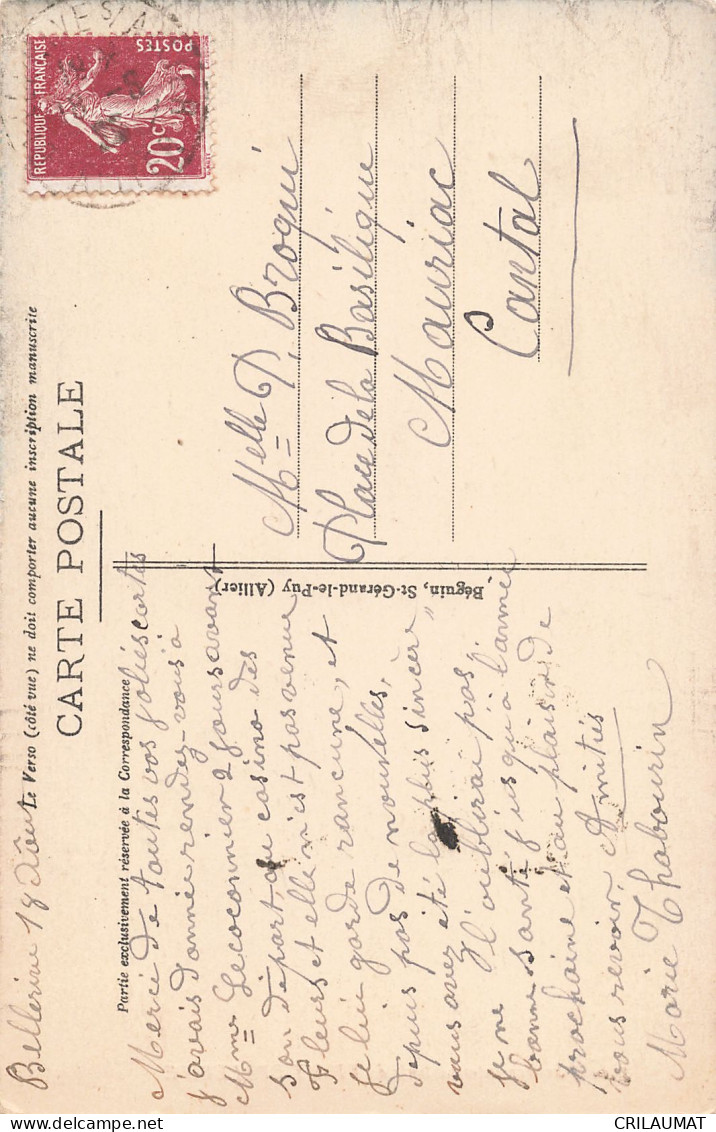 RÉPUBLIQUE FRANÇAISE
POSTES
20c
Le Verso (côté vue) ne doit comporter aucune inscription manuscrite
CARTE POSTALE
Partie exclusivement réservée à la Correspondance
Béguin, St-Gérand-le-Puy (Allier)
Bellerive 18 Août
Merci de toutes vos jolies cartes
j'avais donnée rendez-vous à
Mme Lecoconnier 2 jours avant
son départ au casino des
Fleurs et elle n'est pas venue
je lui garde rancune, et
depuis pas de nouvelles,
vous avez été la plus sincère
je ne l'oublirai pas,
bonne santé jusqu'à l'année
prochaine et au plaisir de
vous revoir, Amitiés
Marie Thabourin
Melle P. Broqui
Place de la Basilique
Mauriac
Cantal
CRILAUMAT